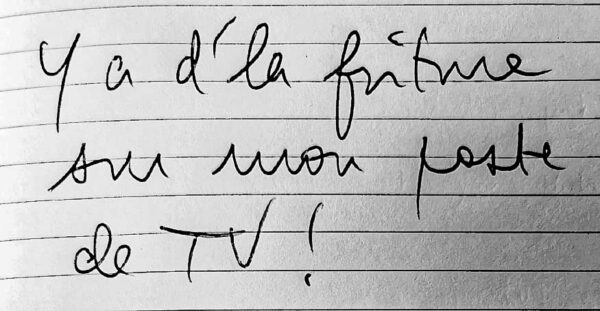 Y a d'la friture
sur mon poste
de TV !